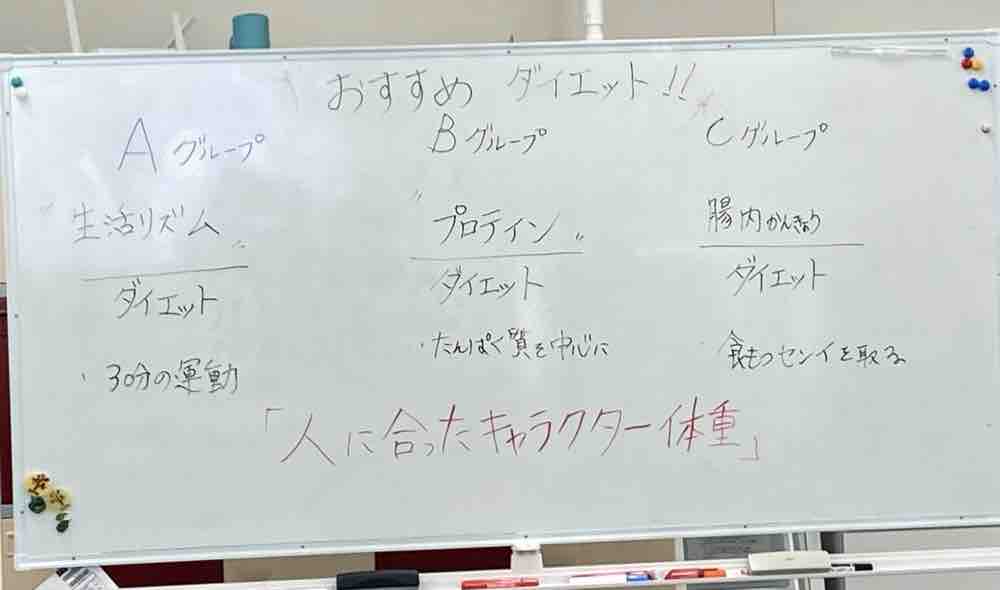 おすすめ ダイエット!!
Aグループ
生活リズム
ダイエット
・30分の運動
Bグループ
"プロテイン"
ダイエット
・たんぱく質を中心に
Cグループ
腸内かんきょう
ダイエット
・食もつセンイを取る
「人に合ったキャラクター体重」